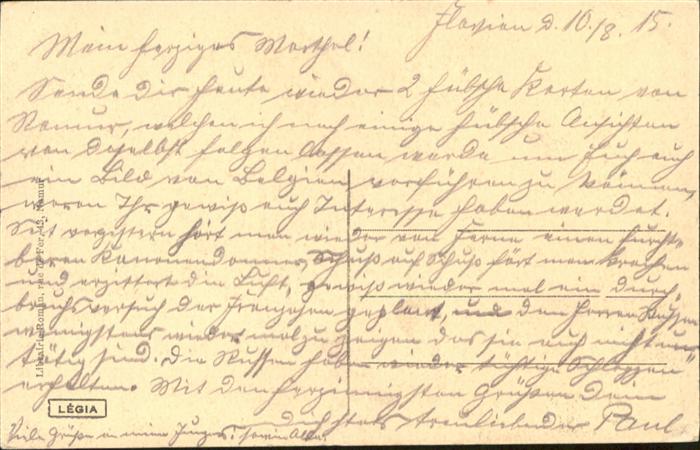 Flavion d. 10./8. 15.
Mein herziges Marthel!
Sende Dir heute wieder 2 hübsche Karten von
Namur, welchen ich noch einige hübsche Ansichten
von daselbst folgen lassen werde um Euch auch
ein Bild von Belgien vorführen zu können,
woran Ihr gewiß auch Interesse haben werdet.
Seit gestern hört man wieder von Ferne einen furcht-
baren Kanonendonner, Schuß auf Schuß hört man krachen
und erzittert die Luft, gewiß wieder mal ein Durch
bruchsversuch der Franzosen geplant, und den Herren Russen
wenigstens wieder mal zu zeigen das sie auch nicht un-
tätig sind. Die Russen haben wieder tüchtige Schlappen
erhalten. Mit den herzinnigsten Grüßen Dein
Dich stets treuliebender Paul
Viele Grüße an meine Jungens, sowie Alle.
LÉGIA
Librairie Roman, rue de Fer, 43, Namur